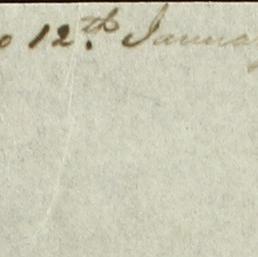 12.th Janua